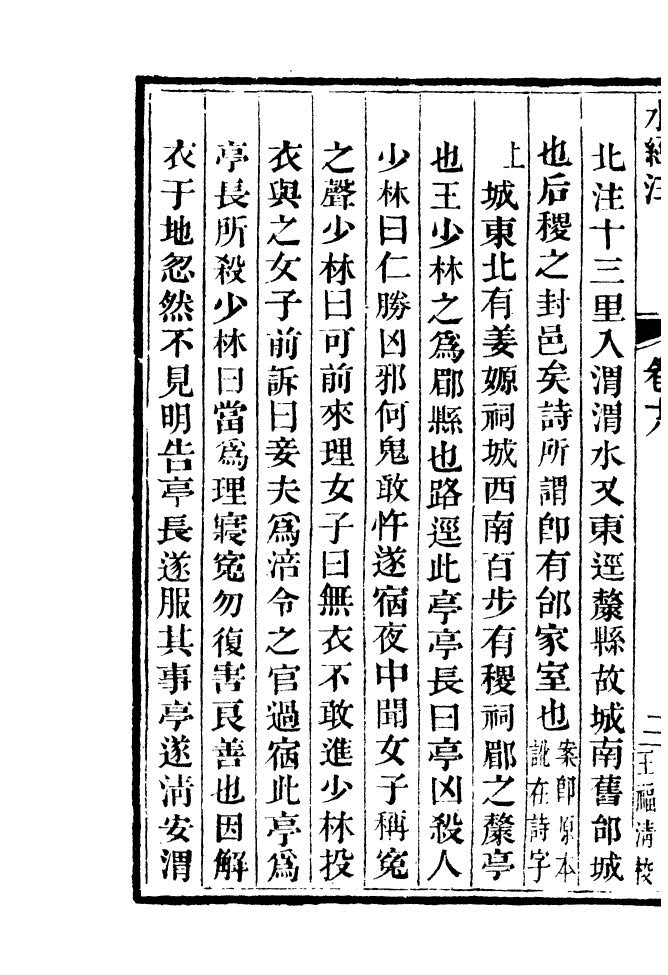 水經注 卷十八 二 王福清校
北注十三里入渭渭水又東逕斄縣故城南舊邰城
也后稷之封邑矣詩所謂卽有邰家室也案卽原本訛在詩字
上城東北有姜嫄祠城西南百步有稷祠郿之斄亭
也王少林之爲郿縣也路逕此亭亭長曰亭凶殺人
少林曰仁勝凶邪何鬼敢忤遂宿夜中聞女子稱冤
之聲少林曰可前來理女子曰無衣不敢進少林投
衣與之女子前訴曰妾夫爲涪令之官過宿此亭爲
亭長所殺少林曰當爲理寢冤勿復害良善也因解
衣于地忽然不見明告亭長遂服其事亭遂淸安渭